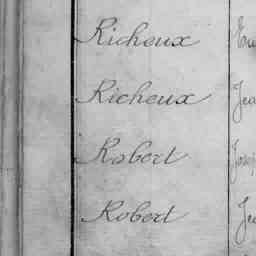 Richeux
Richeux Jea
Robert Josep
Robert Jea